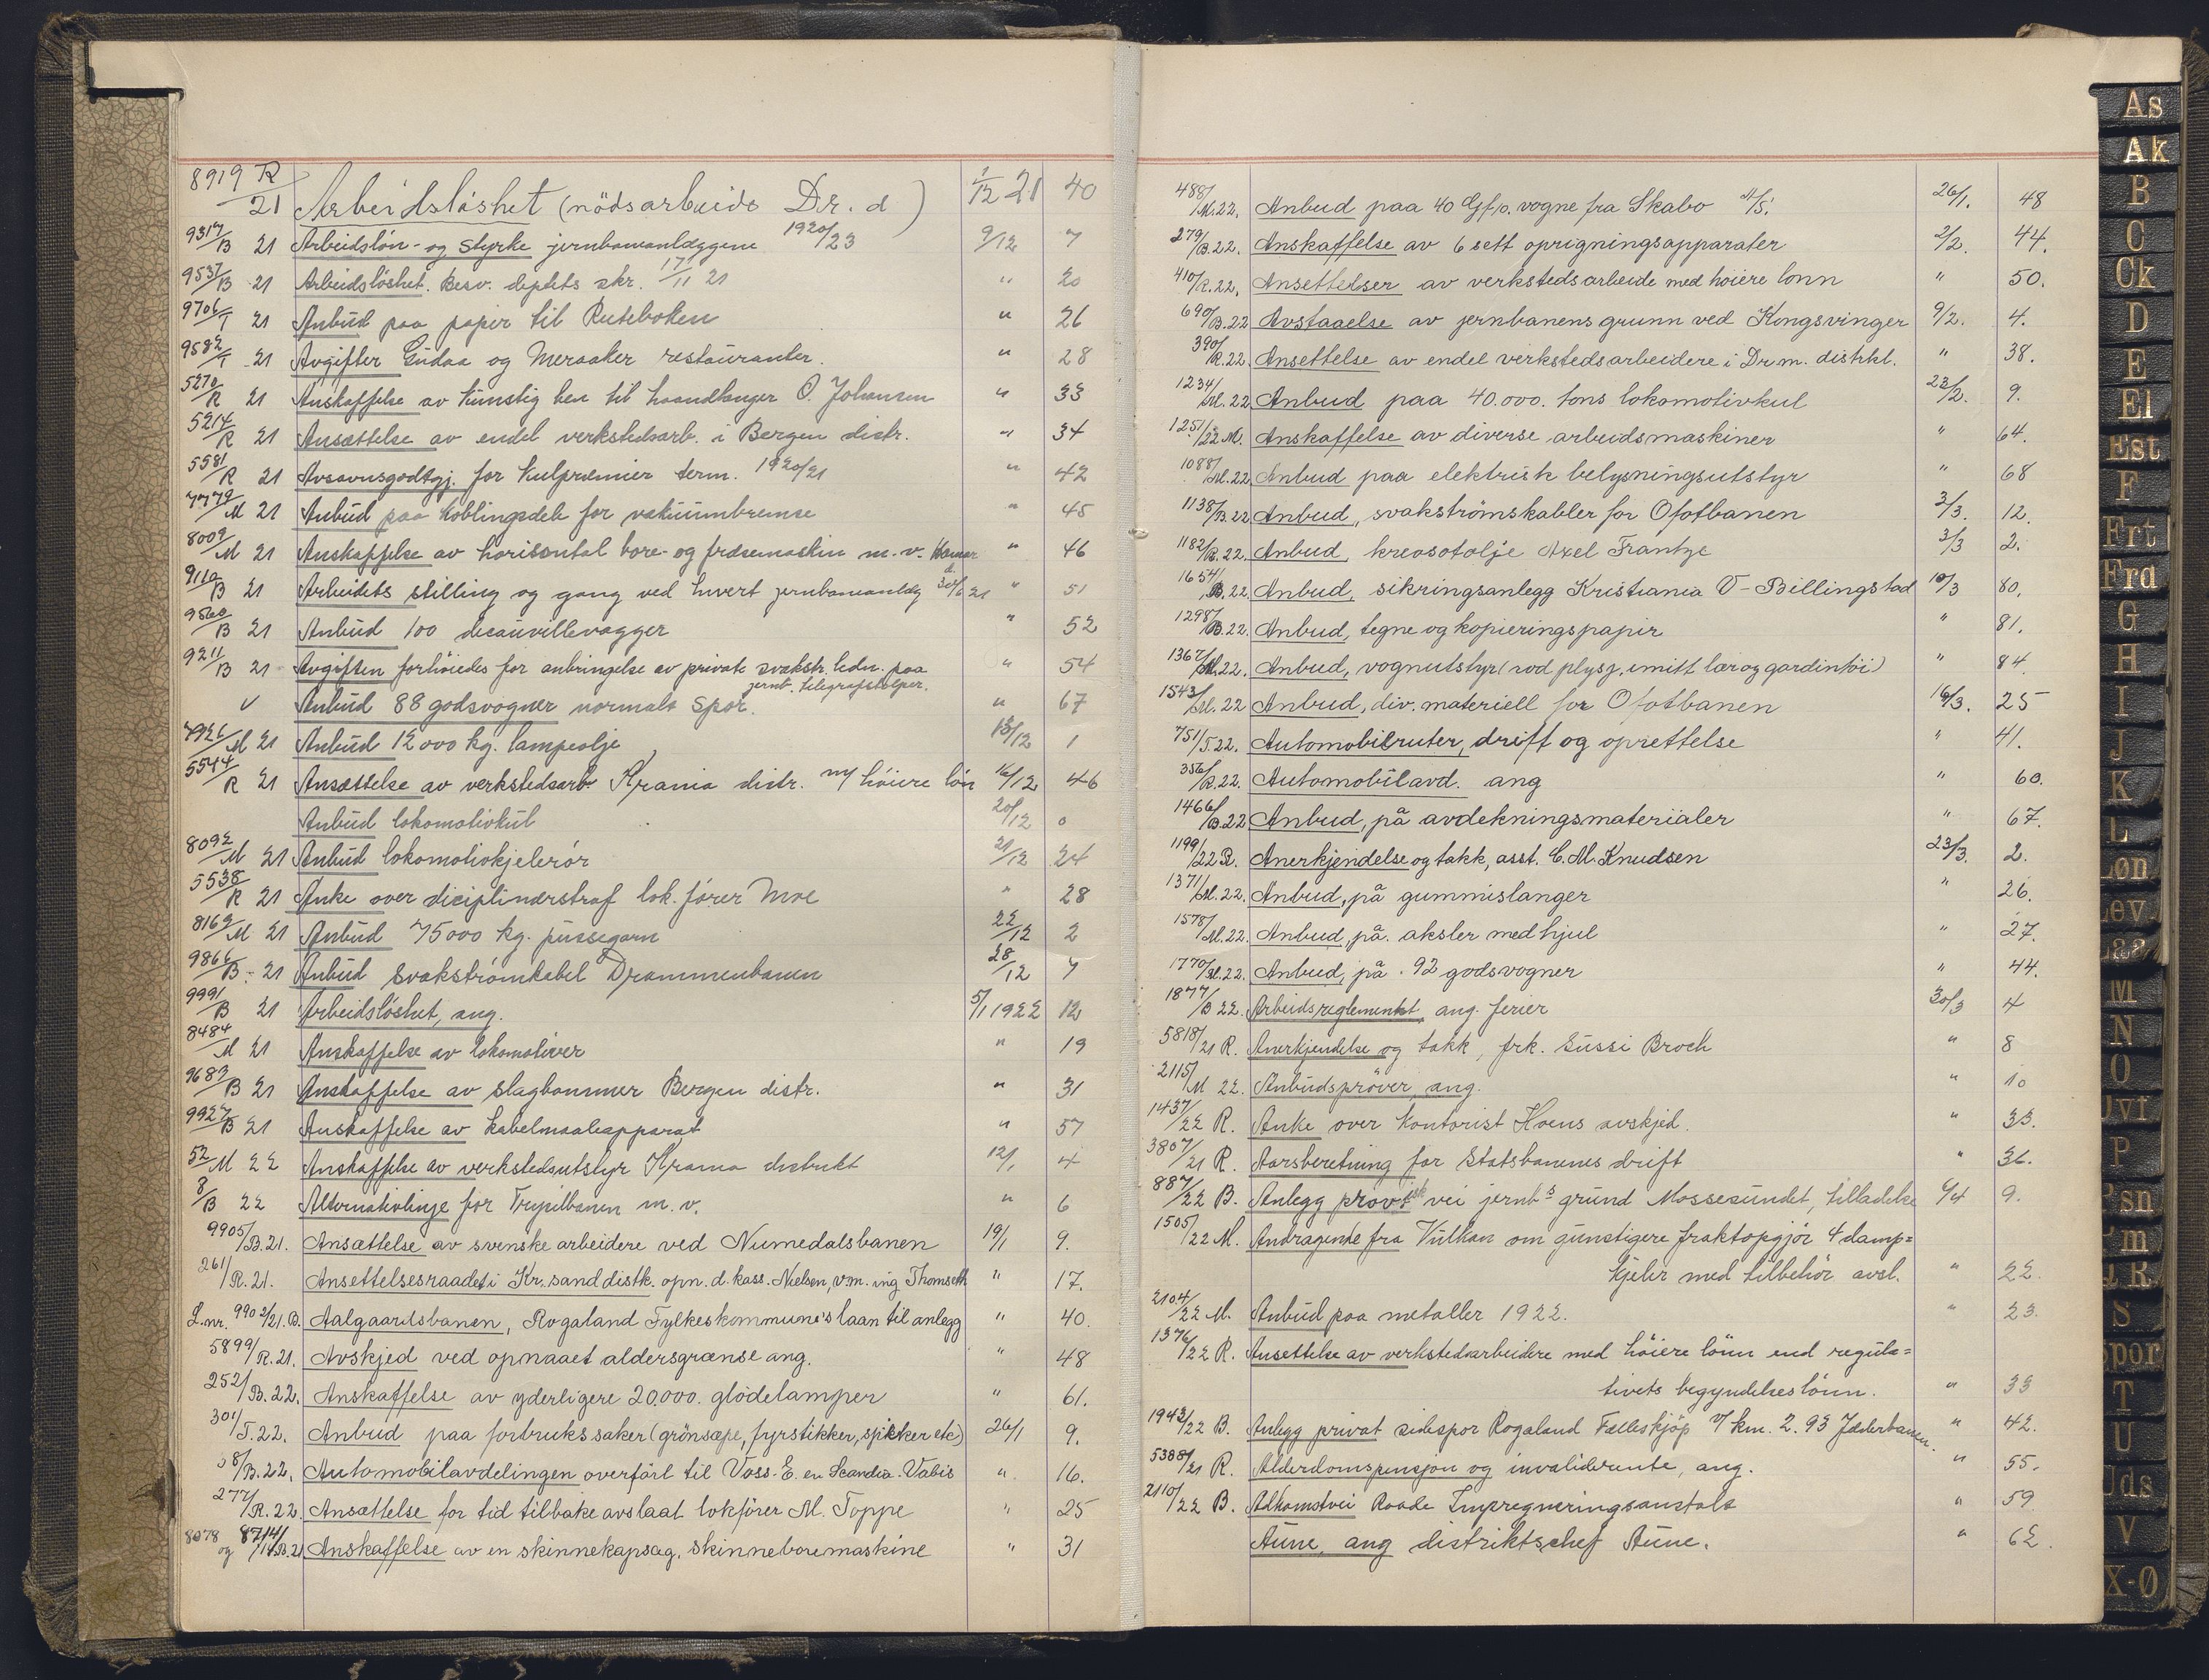 8919 R/21 Arbeidsløshet (nödsarbeide Dr. d) 1/12 21 40
9317/B 21 Arbeidslön- og styrke jernbaneanlæggene 1920/23 9/12 7
9537/B 21 Arbeidsløshet. Besv. deptets skr. 17/11 21 " 20
9706/T 21 Anbud paa papir til Ruteboken " 26
9582/T 21 Avgifter Gudaa og Meraaker restauranter. " 28
5270/R 21 Anskaffelse av kunstig ben til haandlanger O. Johansen " 33
5214/R 21 Ansættelse av endel verkstedsarb. i Bergen distr. " 34
5581/R 21 Avsavnsgodtgj. for kulpremier term. 1920/21 " 42
7779/M 21 Anbud paa koblingsdele for vakuumbremse " 45
8009/M 21 Anskaffelse av horisontal bore- og fræsemaskin m.v. Hamar " 46
9110/B 21 Arbeidets stilling og gang ved hvert jernbaneanlæg 30/6 21 " 51
9560/B 21 Anbud 100 decauvillevagger " 52
9211/B 21 Avgiften forhöiedes for anbringelse av private svakstr. ledn. paa " 54
jernb. telegrafstolper.
v Anbud 88 godsvogner normalt spor. " 67
7926/M 21 Anbud 12000 kg. lampeolje 13/12 1
5544/R 21 Ansættelse av verkstedsarb Krania distr. m/ höiere lön 16/12 46
Anbud lokomotivkul 20/12 0
8092/M 21 Anbud lokomotivkjelerör 21/12 24
5538/R 21 Anke over diciplinærstraf lok.förer Moe " 28
8169/M 21 Anbud 75000 kg. pussegarn 22/12 2
9866/B 21 Anbud svakströmkabel Drammenbanen 28/12 7
9991/B 21 Arbeidsløshet, ang. 5/1 1922 12
8484/M 21 Anskaffelse av lokomotiver " 19
9683/B 21 Anskaffelse av slaghammer Bergen distr. " 31
9927/B 21 Anskaffelse av kabelmaaleapparat " 57
52/M 22 Anskaffelse av verkstedsutstyr Krania distrikt 12/1 4
8/B 22 Alternativlinje for Trysilbanen m.v. " 6
9905/B.21. Ansættelse av svenske arbeidere ved Numedalsbanen 19/1 9.
261/R.21. Ansettelsesraadet i Kr.sand distk. opn. d. kass. Nielsen, v.m. ing Thomseth " 17.
L.nr. 990 2/21.B. Aalgaardsbanen, Rogaland Fylkeskommune's laan til anlegg " 40.
5899/R.21. Avskjed ved opnaaet aldersgrænse ang. " 48
252/B.22. Anskaffelse av yderligere 20.000. glödelamper " 61.
301/T.22. Anbud paa forbrukssaker (grönsæpe, fyrstikker, spikker etc) 26/1 9.
58/B.22. Automobilavdelingen overfört til Voss-E. en Scandia-Vabis " 16.
277/R.22 Ansættelse for tid tilbake avslaat lokförer M. Toppe " 25
8078 og 8714/B.21 Anskaffelse av en skinnekapsag, skinneboremaskine " 31
488/M.22. Anbud paa 40 Gf/o. vogne fra Skabo A/S. 26/1. 48
279/B.22. Anskaffelse av 6 sett oprigningsapparater 2/2. 44.
410/R.22. Ansettelser av verkstedsarbeide med höiere lonn " 50.
690/B.22 Avstaaelse av jernbanens grunn ved Kongsvinger 9/2. 4.
390/R.22. Ansettelse av endel verkstedsarbeidere i Drm. distrkt. " 38.
1234/M.22. Anbud paa 40.000. tons lokomotivkul 23/2. 9.
1251/22 M. Anskaffelse av diverse arbeidsmaskiner " 64.
1088/M.22. Anbud paa elektrisk belysningsutstyr " 68
1138/B.22 Anbud, svakströmskabler for Ofotbanen 3/3. 12.
1182/B.22. Anbud, kreosotolje Axel Frantze 3/3 2.
1654/B.22. Anbud, sikringsanlegg Kristiania V - Billingstad 10/3 80.
1298/B.22. Anbud, tegne og kopieringspapir " 81.
1367/M.22. Anbud, vognutstyr (rod plysg, imitt lær og gardintöi) " 84.
1543/M.22 Anbud, div. materiell for Ofotbanen 16/3. 25
751/T.22. Automobilruter, drift og oprettelse " 41.
356/R.22. Automobilavd. ang " 60.
1466/B.22 Anbud, på avdekningsmaterialer " 67.
1199/22 R. Anerkjendelse og takk, asst. C. M. Knudsen 23/3. 2.
1371/M.22. Anbud, på gummislanger " 26.
1578/M.22. Anbud, på aksler med hjul " 27.
1770/M.22. Anbud, på 92 godsvogner " 44.
1877/B 22. Arbeidsreglementet ang. ferier 30/3 4
5818/21 R. Anerkjendelse og takk, frk. Sussi Broch " 8
2115/M 22. Anbudspröver ang. " 10
1437/22 R. Anke over Kontorist Hoens avskjed. " 33.
3807/21 R. Aarsberetning for Statsbanenes drift " 36.
887/22 B. Anlegg provisk vei jernbs grund Mossesundet, tilladelse 6/4 9.
1505/22 M. Andragende fra Vulkan om gunstigere fraktopgjör 4 damp=
kjeler med tilbehör avsl. " 22.
2104/22 M. Anbud paa metaller 1922. " 23.
1376/22 R. Ansettelse av verkstedsarbeidere med höiere lönn end regula=
tivets begyndelseslönn. " 33
1943/22 B. Anlegg privat sidespor Rogaland Fælleskjöp v/ km. 2.93 Jæderbanen. " 42.
5388/21 R. Alderdomspensjon og invaliderente, ang. " 55.
2110/22 B. Adkomstvei Raade Impregneringsanstalt " 59
Aune, ang distriktschef Aune. " 62.
As
Ak
B
C
Ck
D
E
El
Est
F
Frt
Fra
G
H
I
J
K
L
Løn
Lev
Laa
M
N
O
Ovt
P
Psn
R
S
Spor
T
U
Uds
V
X-Ø